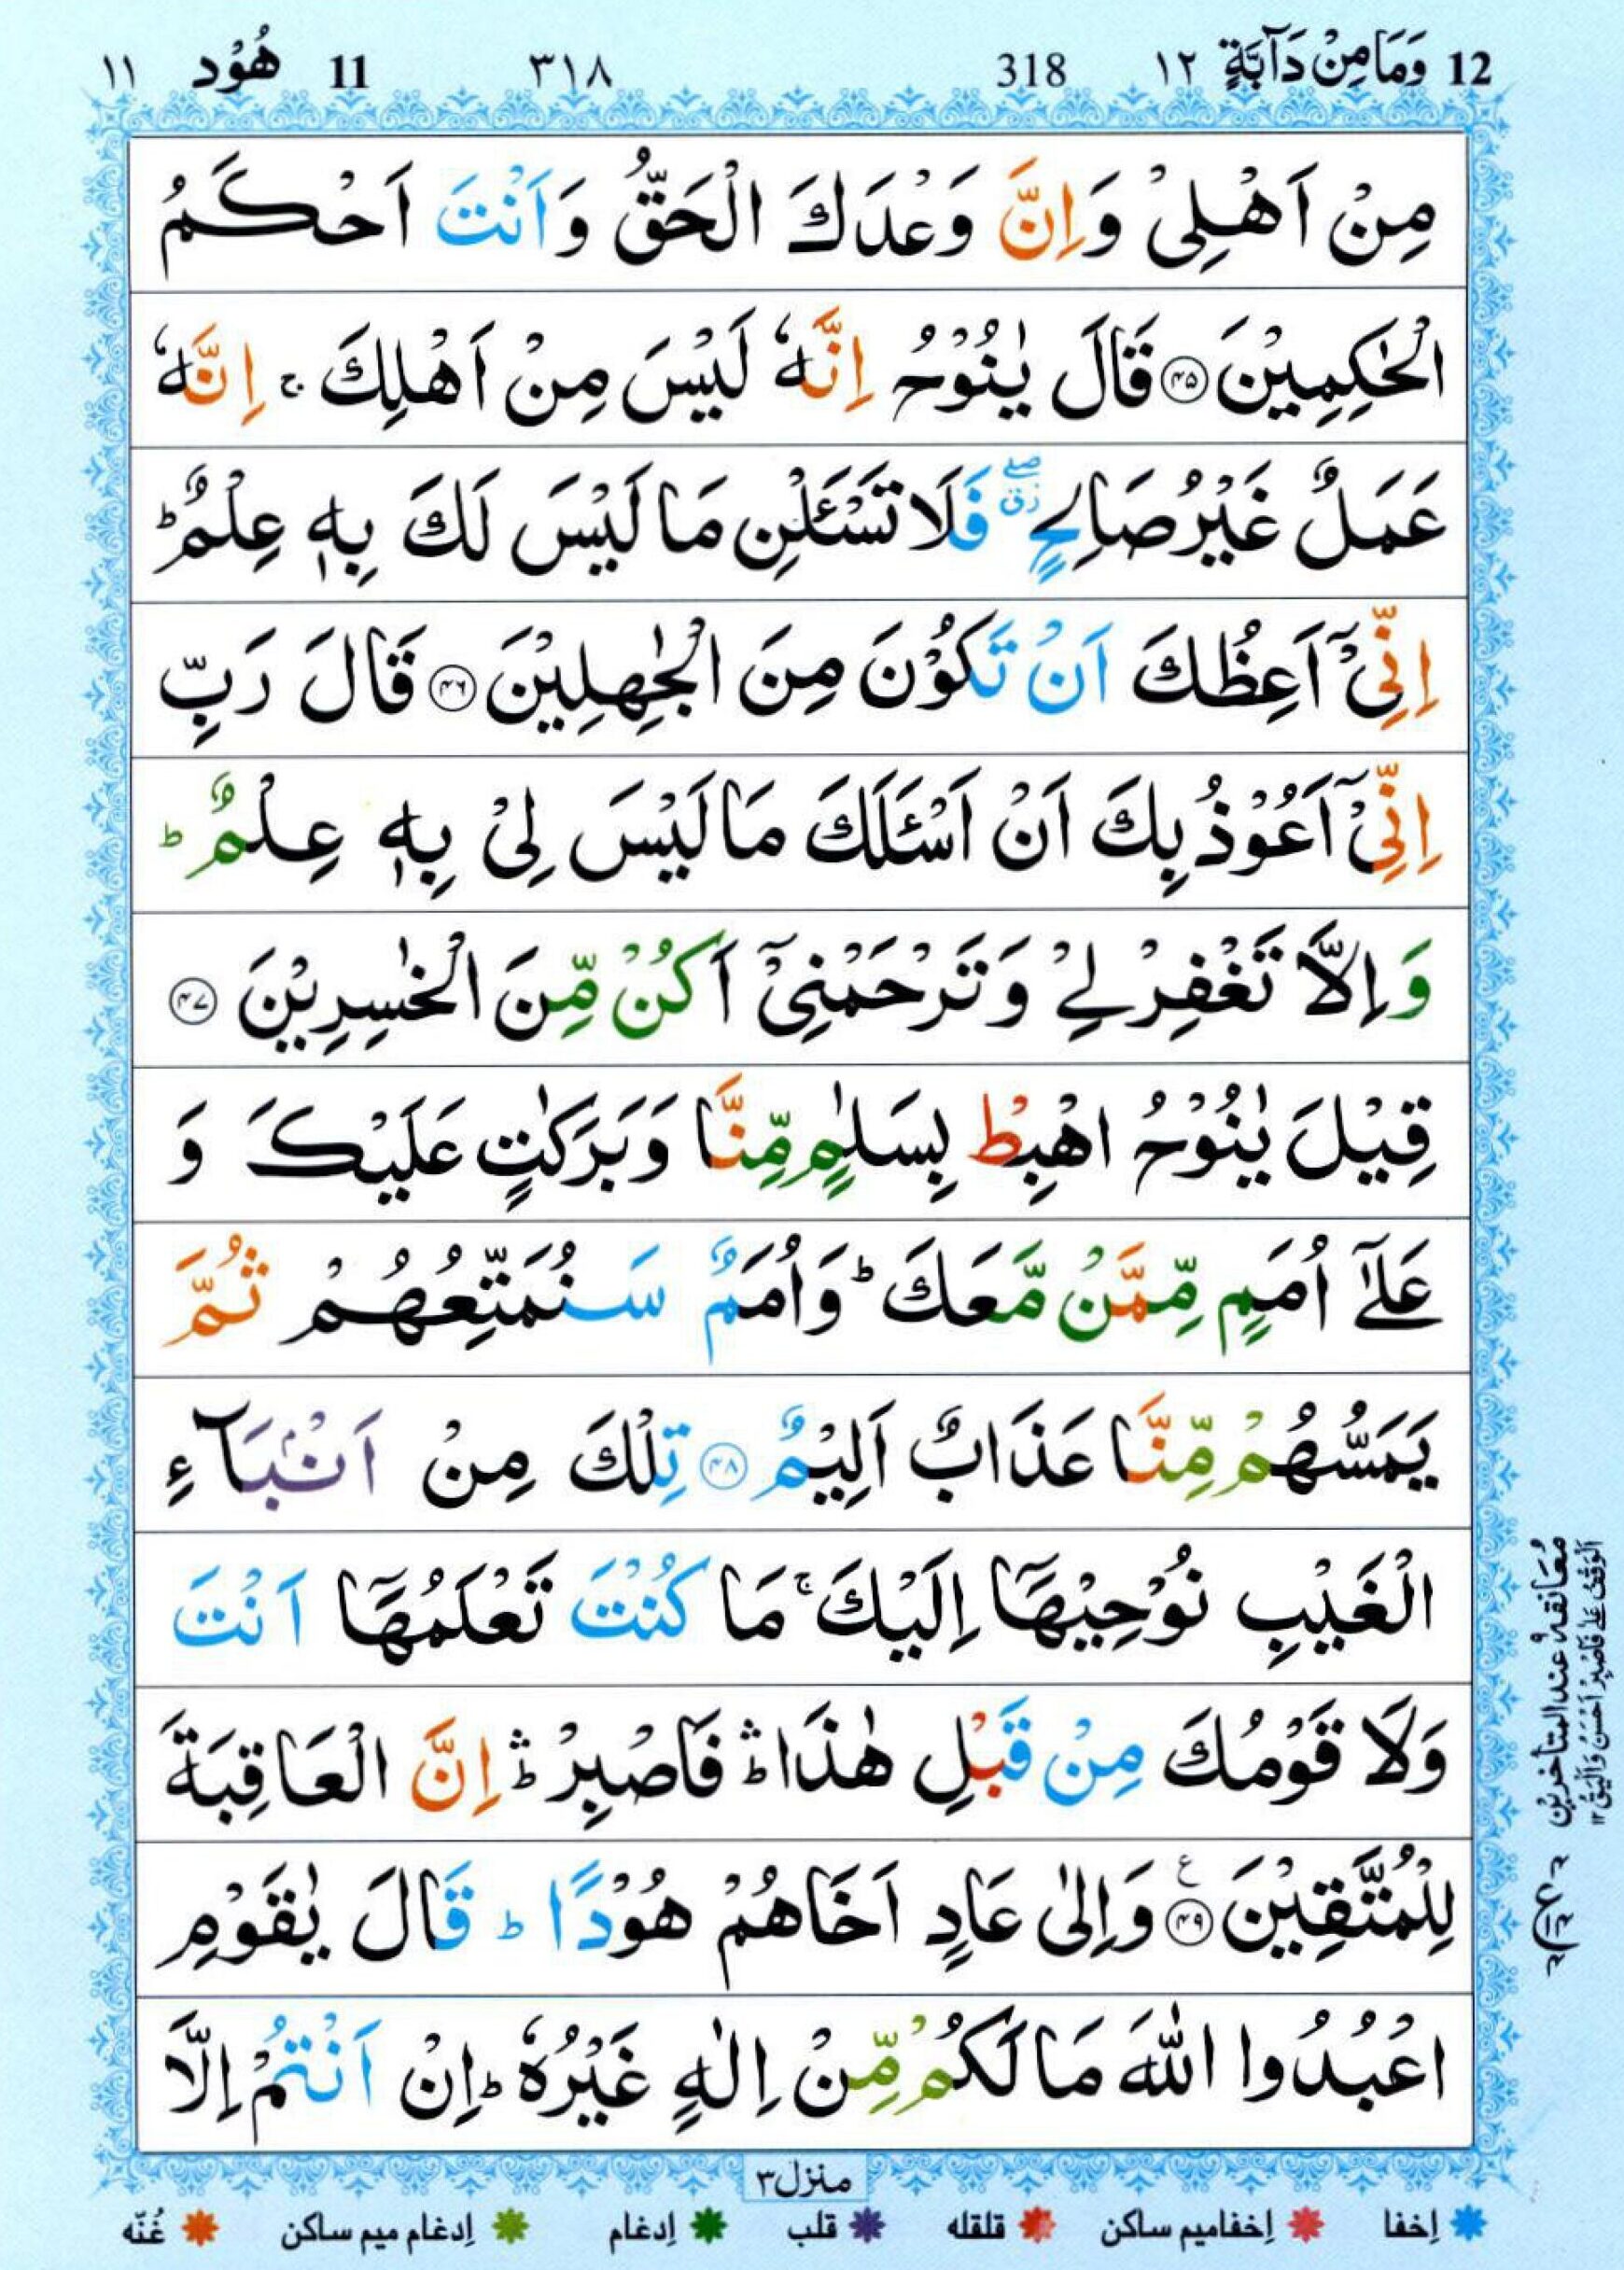 12 وَمَا مِنْ دَآبَّةٍ ١٢ 318 ٣١٨ 11 هُوْد ١١
مِنْ اَهْلِیْ وَاِنَّ وَعْدَكَ الْحَقُّ وَاَنْتَ اَحْكَمُ
الْحٰكِمِیْنَ ۝۴۵ قَالَ یٰنُوْحُ اِنَّهٗ لَیْسَ مِنْ اَهْلِكَ ۚ اِنَّهٗ
عَمَلٌ غَیْرُ صَالِحٍ ۖ زق فَلَا تَسْـَٔلْنِ مَا لَیْسَ لَكَ بِهٖ عِلْمٌ ؕ
اِنِّیْۤ اَعِظُكَ اَنْ تَكُوْنَ مِنَ الْجٰهِلِیْنَ ۝۴۶ قَالَ رَبِّ
اِنِّیْۤ اَعُوْذُ بِكَ اَنْ اَسْـَٔلَكَ مَا لَیْسَ لِیْ بِهٖ عِلْمٌ ؕ
وَاِلَّا تَغْفِرْ لِیْ وَتَرْحَمْنِیْۤ اَكُنْ مِّنَ الْخٰسِرِیْنَ ۝۴۷
قِیْلَ یٰنُوْحُ اهْبِطْ بِسَلٰمٍ مِّنَّا وَبَرَكٰتٍ عَلَیْكَ وَ
عَلٰۤی اُمَمٍ مِّمَّنْ مَّعَكَ ؕ وَاُمَمٌ سَنُمَتِّعُهُمْ ثُمَّ
یَمَسُّهُمْ مِّنَّا عَذَابٌ اَلِیْمٌ ۝۴۸ تِلْكَ مِنْ اَنْۢبَآءِ
الْغَیْبِ نُوْحِیْهَاۤ اِلَیْكَ ۚ مَا كُنْتَ تَعْلَمُهَاۤ اَنْتَ
وَلَا قَوْمُكَ مِنْ قَبْلِ هٰذَا ۛؕ فَاصْبِرْ ۛؕ اِنَّ الْعَاقِبَةَ
لِلْمُتَّقِیْنَ ۝۴۹ ع وَاِلٰی عَادٍ اَخَاهُمْ هُوْدًا ؕ قَالَ یٰقَوْمِ
اعْبُدُوا اللّٰهَ مَا لَكُمْ مِّنْ اِلٰهٍ غَیْرُهٗ ؕ اِنْ اَنْتُمْ اِلَّا
مُعَانقه ۹ عند المتأخرین
اَلْوَقْفُ عَلٰی فَاصْبِرْ اَحْسَنُ وَاَلْیَقُ ۱۲
منزل ۳
اِخفا اِخفامیم ساکن قلقله قلب اِدغام اِدغام میم ساکن غُنّه